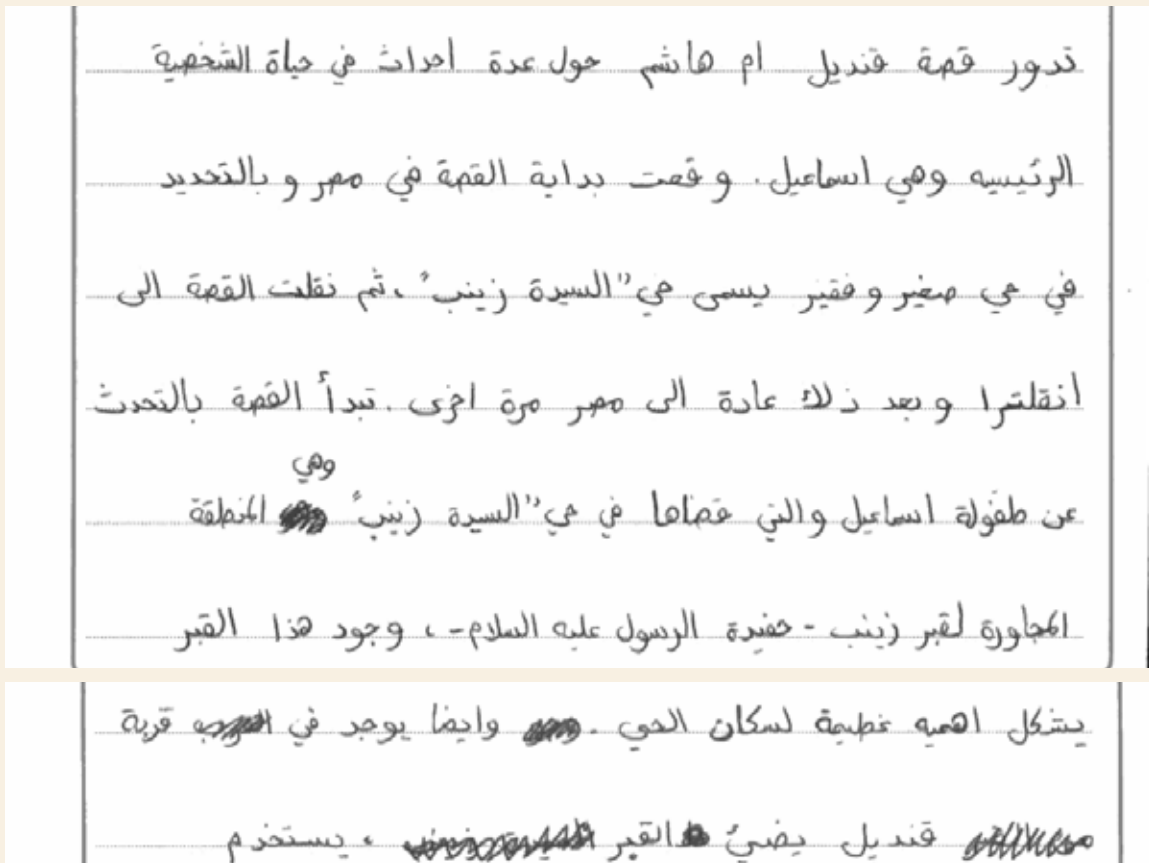 تدور قصة قنديل ام هاشم حول عدة احداث في حياة الشخصية
الرئيسيه وهي اسماعيل. وقعت بداية القصة في مصر وبالتحديد
في حي صغير وفقير يسمى حي "السيدة زينب"، ثم نقلت القصة الى
انقلترا وبعد ذلك عادة الى مصر مرة اخرى. تبدأ القصة بالتحدث
عن طفولة اسماعيل والتي قضاها في حي "السيدة زينب" وهي المنطقة
المجاورة لقبر زينب - حفيدة الرسول عليه السلام -، وجود هذا القبر
يشكل اهميه عظيمة لسكان الحي. وايضا يوجد في قربة
قنديل يضيئ القبر، يستخدم